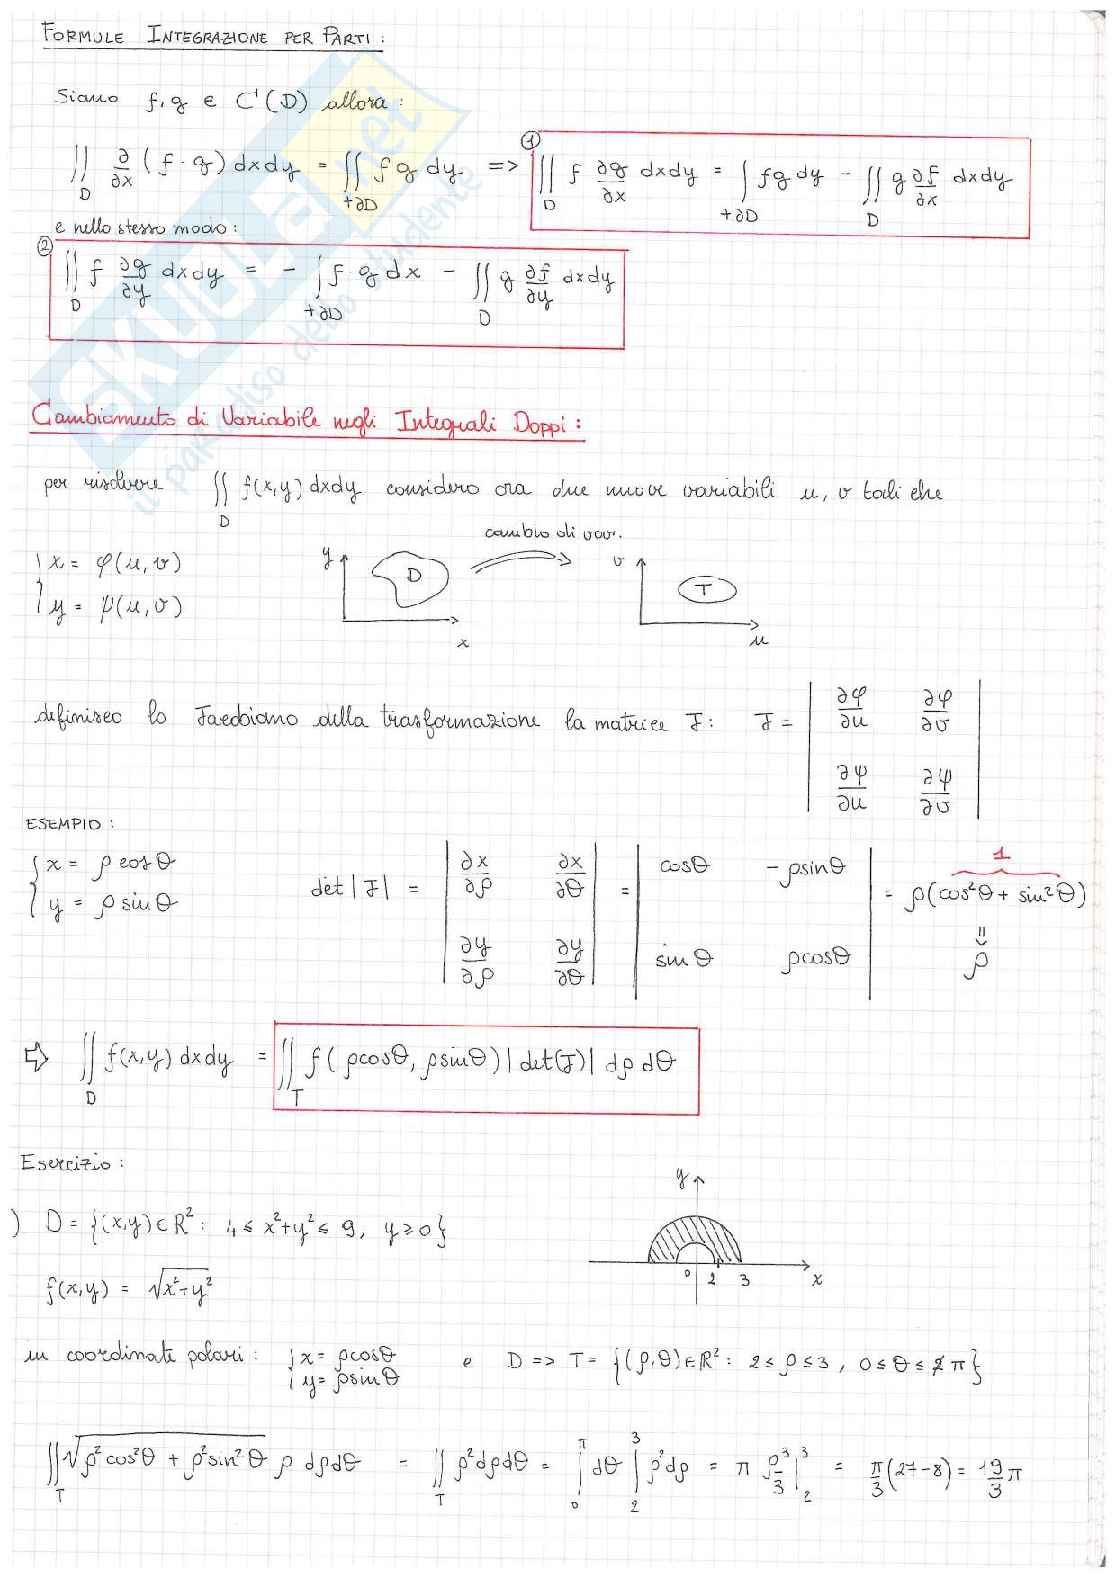 FORMULE INTEGRAZIONE PER PARTI :
Siano f, g ∈ C¹(D) allora :
∬_D ∂/∂x (f · g) dxdy = ∬_{+∂D} fg dy. => ① ∬_D f ∂g/∂x dxdy = ∫_{+∂D} fg dy - ∬_D g ∂f/∂x dxdy
e nello stesso modo :
② ∬_D f ∂g/∂y dxdy = - ∫_{+∂D} f g dx - ∬_D g ∂f/∂y dxdy
Cambiamento di Variabile negli Integrali Doppi :
per risolvere ∬_D f(x,y) dxdy considero ora due nuove variabili u, v tali che
cambio di var.
{ x = φ(u,v)
{ y = ψ(u,v)
y D x
v T u
definisco lo Jacobiano della trasformazione la matrice J : J = | ∂φ/∂u ∂φ/∂v |
| ∂ψ/∂u ∂ψ/∂v |
ESEMPIO :
{ x = ρ cosθ
{ y = ρ sinθ
det |J| = | ∂x/∂ρ ∂x/∂θ | = | cosθ -ρsinθ | = ρ(cos²θ + sin²θ)
| ∂y/∂ρ ∂y/∂θ | | sinθ ρcosθ |
1
=> ρ
⇨ ∬_D f(x,y) dxdy = ∬_T f(ρcosθ, ρsinθ) |det(J)| dρ dθ
Esercizio :
) D = {(x,y) ∈ R² : 4 ≤ x²+y² ≤ 9, y ≥ 0}
f(x,y) = √x²+y²
y 0 2 3 x
in coordinate polari : { x = ρcosθ
{ y = ρsinθ
e D => T = {(ρ,θ) ∈ R² : 2 ≤ ρ ≤ 3, 0 ≤ θ ≤ π}
∬_T √ρ²cos²θ + ρ²sin²θ ρ dρdθ = ∬_T ρ²dρdθ = ∫_0^π dθ ∫_2^3 ρ²dρ = π ρ³/3 |_2^3 = π/3 (27-8) = 19/3 π
SKUOLA.net
il paradiso dello studente